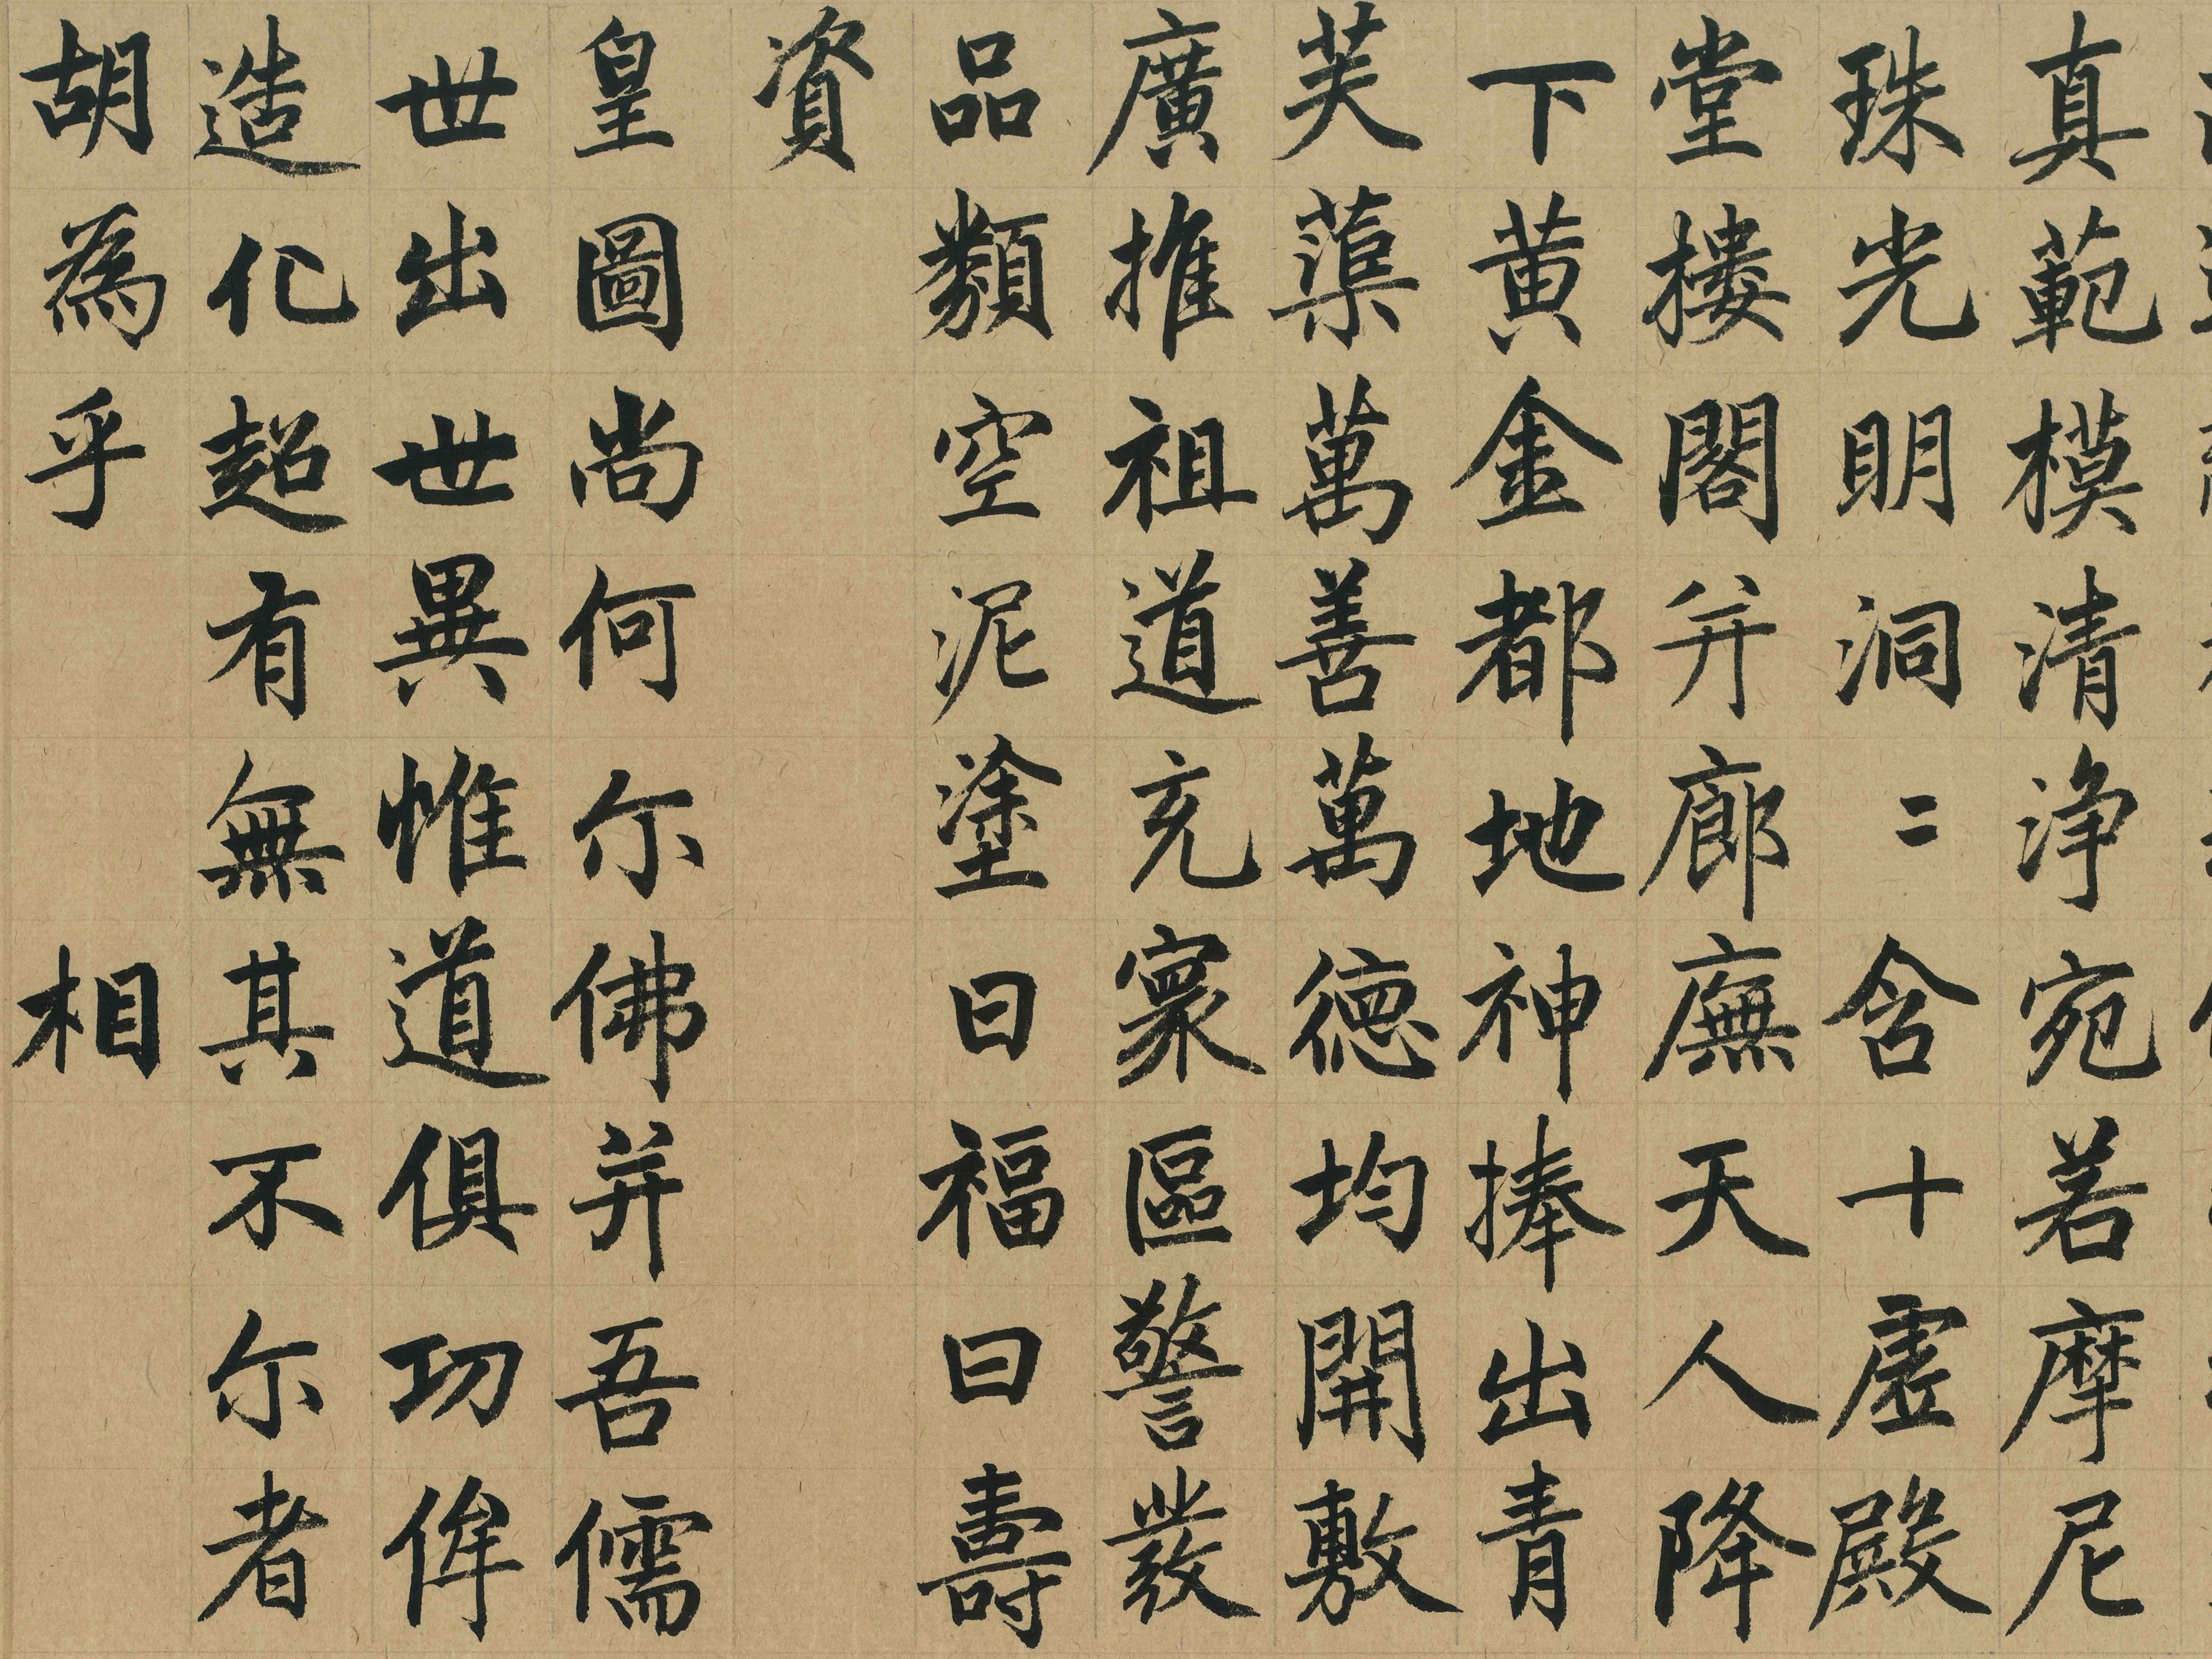 真範模清浄宛若摩尼
珠光明洞〻含十虚殿
堂樓閣并廊廡天人降
下黄金都地神捧出青
芙蕖萬善萬德均開敷
廣推祖道充寰區警發
品類空泥塗曰福曰壽
資
皇圖尚何尓佛并吾儒
世出世異惟道俱功侔
造化超有無其不尓者
胡為乎 相